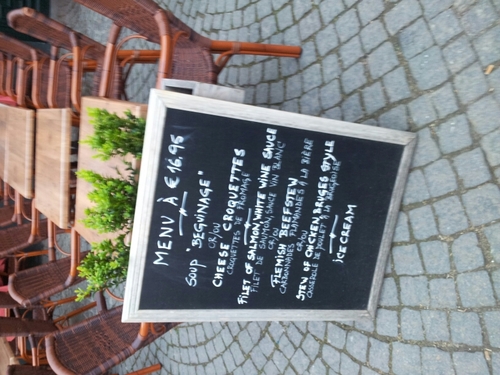 MENU À € 16,95
SOUP BEGUINAGE"
OR/OU
CHEESE CROQUETTES
CROQUETTES DE FROMAGE
FILET OF SALMON, WHITE WINE SAUCE
FILET DE SAUMON, SAUCE VIN BLANC
OR/OU
FLEMISH BEEFSTEW
CARBONNADES FLAMANDES À LA BIÈRE
OR/OU
STEW OF CHICKEN BRUGES STYLE
CASSEROLE DE POULET À LA BRUGEOISE
ICECREAM